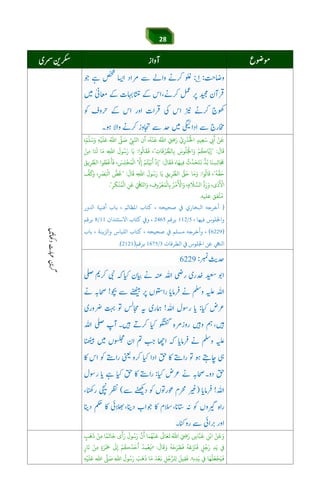 28
موضوع
آواز
سکرین سمری
وضاحت: 1: غلو کرنے والے سے مراد ایسا شخص ہے جو
قرآن مجید پر عمل کرنے، اس کے متشابہات کے معانی میں
کھوج کرنے نیز اس کی قرات اور اس کے حروف کو
مخارج سے ادائیگی میں حد سے تجاوز کرنے والا ہو۔
عَنْ أَبِي سَعِيدٍ الْخُدْرِيِّ رَضِيَ اللَّهُ عَنْهُ، أَنَّ النَّبِيَّ صَلَّى اللَّهُ عَلَيْهِ وَسَلَّمَ
قَالَ: «إِيَّاكُمْ وَالْجُلُوسَ بِالطُّرُقَاتِ» فَقَالُوا: يَا رَسُولَ اللَّهِ مَا لَنَا مِنْ
مَجَالِسِنَا بُدٌّ نَتَحَدَّثُ فِيهَا، فَقَالَ: «إِذْ أَبَيْتُمْ إِلَّا الْمَجْلِسَ، فَأَعْطُوا الطَّرِيقَ
حَقَّهُ» قَالُوا: وَمَا حَقُّ الطَّرِيقِ يَا رَسُولَ اللَّهِ؟ قَالَ: «غَضُّ الْبَصَرِ، وَكَفُّ
الْأَذَى، وَرَدُّ السَّلَامِ، وَالْأَمْرُ بِالْمَعْرُوفِ، وَالنَّهْيُ عَنِ الْمُنْكَرِ»
متفق عليه.
( أخرجه البخاري في صحيحه ، كتاب المظالم ، باب أفنية الدور
والجلوس فيها ، 112/5 برقم 2465 ، وفي كتاب الاستئذان 8/11 برقم
(6229) ، وأخرجه مسلم في صحيحه ، كتاب اللباس والزينة ، باب
النهي عن الجلوس في الطرقات 1675/3 برقم(2121)
حدیث نمبر: 6229
ابو سعید خدری رضی اللہ عنہ نے بیان کیا کہ نبی کریم صلی
اللہ علیہ وسلم نے فرمایا راستوں پر بیٹھنے سے بچو! صحابہ نے
عرض کیا: یا رسول اللہ! ہماری یہ مجالس تو بہت ضروری
ہیں، ہم وہیں روزمرہ گفتگو کیا کرتے ہیں۔ آپ صلی اللہ
علیہ وسلم نے فرمایا کہ اچھا جب تم ان مجلسوں میں بیٹھنا
ہی چاہتے ہو تو راستے کا حق ادا کیا کرو یعنی راستے کا اس کا
حق دو۔ صحابہ نے عرض کیا: راستے کا حق کیا ہے یا رسول
اللہ! فرمایا (غیر محرم عورتوں کو دیکھنے سے) نظر نیچی رکھنا،
راہ گیروں کو نہ ستانا، سلام کا جواب دینا، بھلائی کا حکم دینا
اور برائی سے روکنا۔